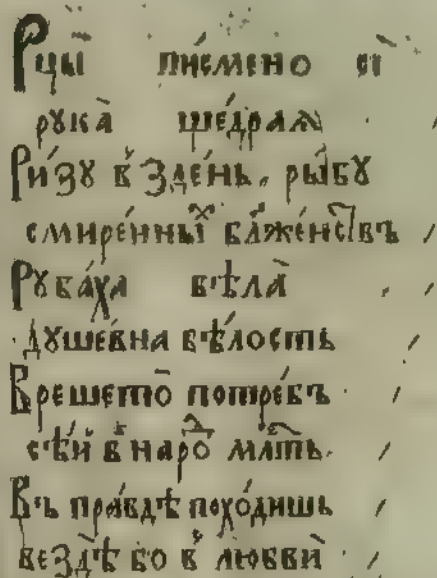 Рцы̀ пи́смено сѝ
рꙋка̀ ще́драѧ
Ри́зꙋ в̾ зде́нь, ры́бꙋ
смире́нныⷯ бл҃же́нствъ
Рꙋба́ха бѣла̀
дꙋше́вна бѣ́лость
В решето̀ потре́бъ
сѣ́й в̾ наро́ⷣ мл҃ть
Въ пра́вдѣ похо́дишь
вездѣ̀ бо в̾ любвѝ